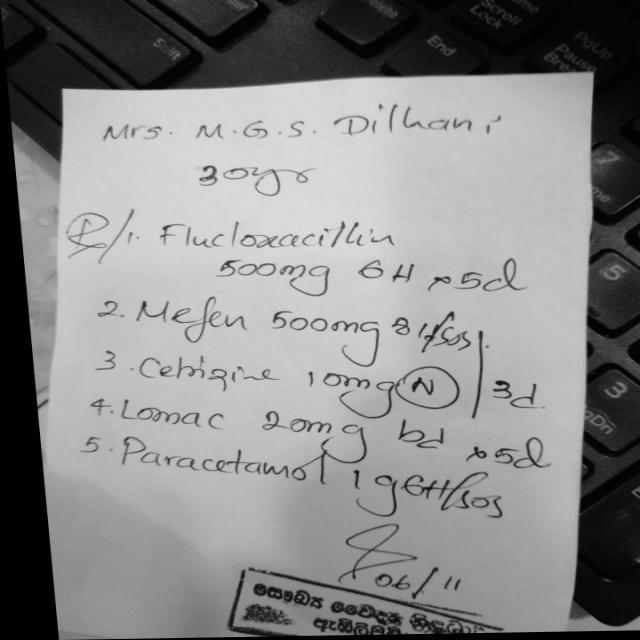 Mrs. M.G.S. Dilhani
30yr
R/1. Flucloxacillin
500mg 6H x5d
2. Mefen 500mg 8H/sos
3. Cetrizine 10mg N 3d
4. Lomac 20mg bd x5d
5. Paracetamol 1g 6H/sos
06/11
සෞඛ්‍ය වෛද්‍ය
Shift
End
Scroll
Lock
PgUp
Pause
7
5
3
PgDn